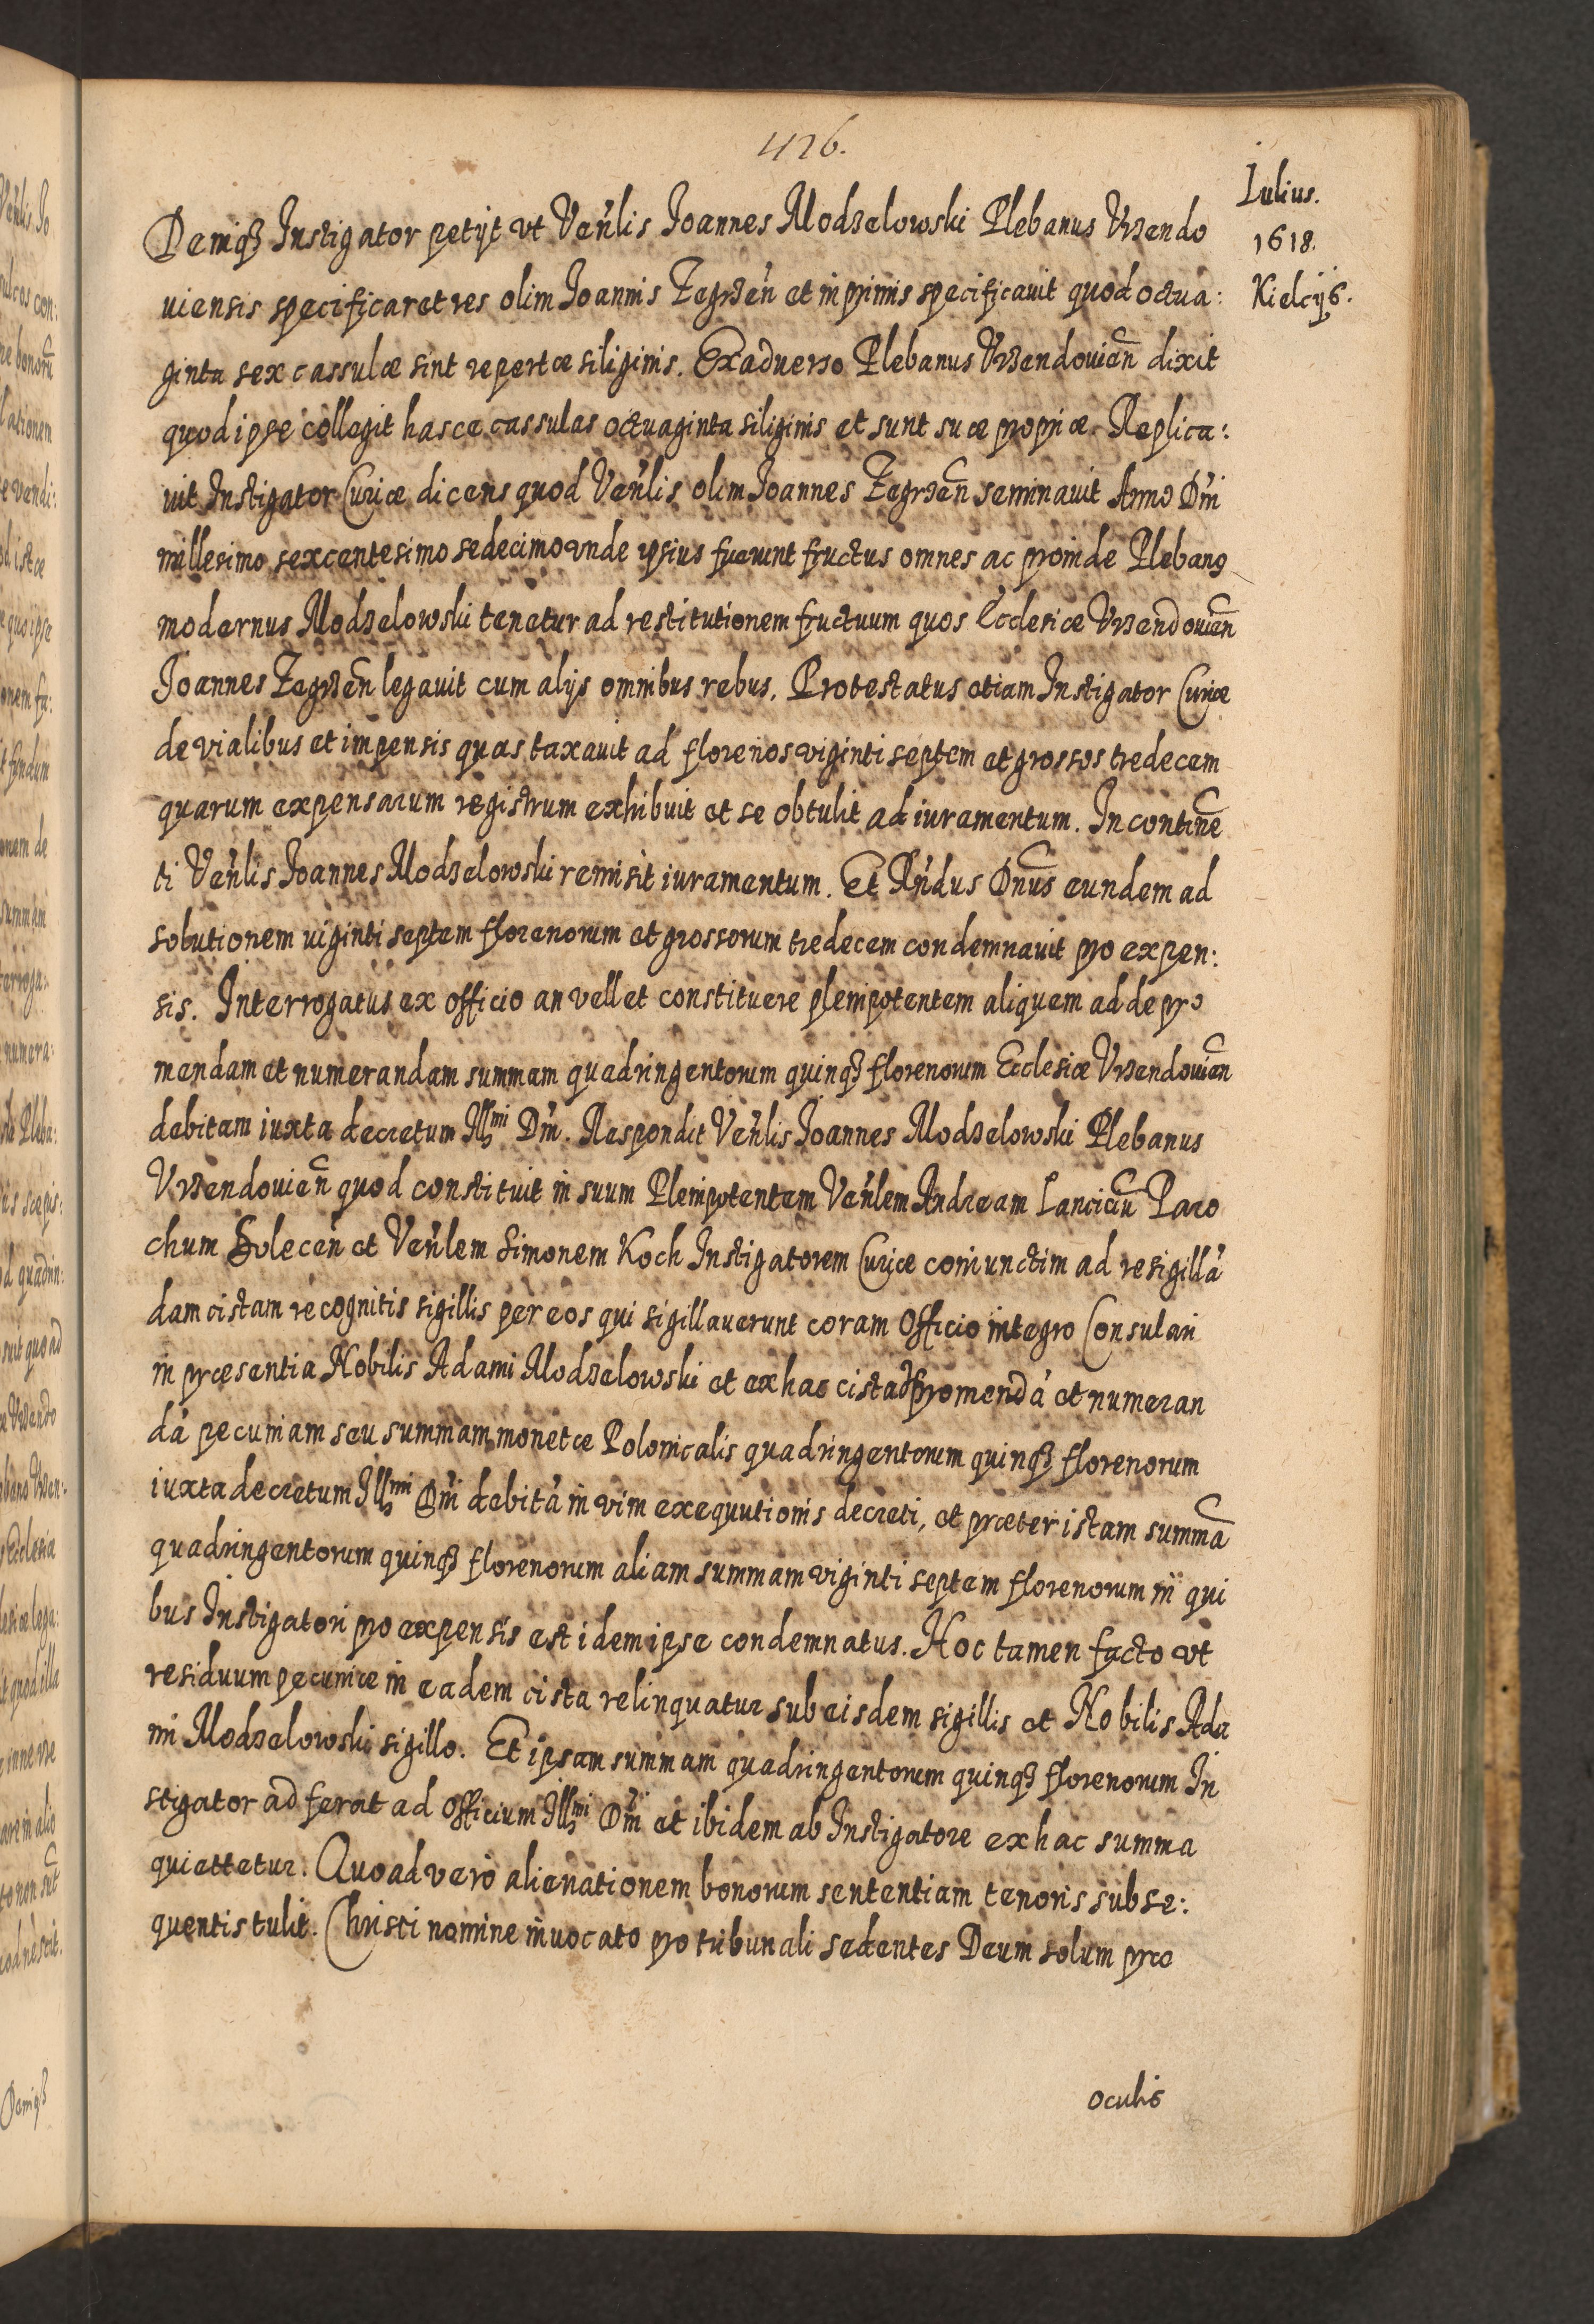 426.
Iulius.
1618.
Kielcijs.
Deniqꝫ Instigator petijt vt Ven̄lis Joannes Modzelowski Plebanus Vrzendo
uiensis specificaret res olim Joannis Zegrzen̄ et inprimis specificauit quod octua:
ginta sex cassulæ sint repertæ siliginis. Ex aduerso Plebanus Vrzendouien̄ dixit
quod ipse collegit hasce cassulas octuaginta siliginis et sunt suæ propriæ. Replica:
uit Instigator Curiæ dicens quod Ven̄lis olim Joannes Zegrzen̄ seminauit Anno Dn̄i
millesimo sexcentesimo sedecimo vnde ipsius fuerunt fructus omnes ac proinde Plebanꝯ
modernus Modzelowski tenetur ad restitutionem fructuum quos Ecclesiæ Vrzendouien̄
Joannes Zegrzen̄ legauit cum alijs omnibus rebus. Protestatus etiam Instigator Curiæ
de vialibus et impensis quas taxauit ad florenos viginti septem et grossos tredecem
quarum expensarum registrum exhibuit et se obtulit ad iuramentum. In contine̅
ti Ven̄lis Joannes Modzelowski remisit iuramentum. Et Rn̄dus Dn̄us eundem ad
solutionem uiginti septem florenorum et grossorum tredecem condemnauit pro expen:
sis. Interrogatus ex officio an vellet constituere plenipotentem aliquem ad depro
mendam et numerandam summam quadringentorum quinqꝫ florenorum Ecclesiæ Vrzendouien̄
debitam iuxta decretum Illmi Dn̄i. Respondit Ven̄lis Joannes Modzelowski Plebanus
Vrzendouien̄ quod constituit in suum Plenipotentem Ven̄lem Andream Lancicin̄ Paro
chum Solecen̄ et Ven̄lem Simonem Koch Instigatorem Curiæ coniunctim ad resigillā
dam cistam recognitis sigillis per eos qui sigillauerunt coram Officio integro Consulari
in præsentia Nobilis Adami Modzelowski et ex hac cista depromendā et numeran
dā pecuniam seu summam monetæ Polonicalis quadringentorum quinqꝫ florenorum
iuxta decretum Illmi Dn̄i debitā in vim exequutionis decreti, et præter istam summā
quadringentorum quinqꝫ florenorum aliam summam viginti septem florenorum in qui
bus Instigatori pro expensis est idem ipse condemnatus. Hoc tamen facto vt
residuum pecuniæ in eadem cista relinquatur sub eisdem sigillis et Nobilis Ada
mi Modzelowski sigillo. Et ipsam summam quadringentorum quinqꝫ florenorum In
stigator adferat ad Officium Illmi Dn̄i et ibidem ab Instigatore ex hac summa
quiettetur. Quoad vero alienationem bonorum sententiam tenoris subse:
quentis tulit. Christi nomine inuocato pro tribunali sedentes Deum solum præ
oculis